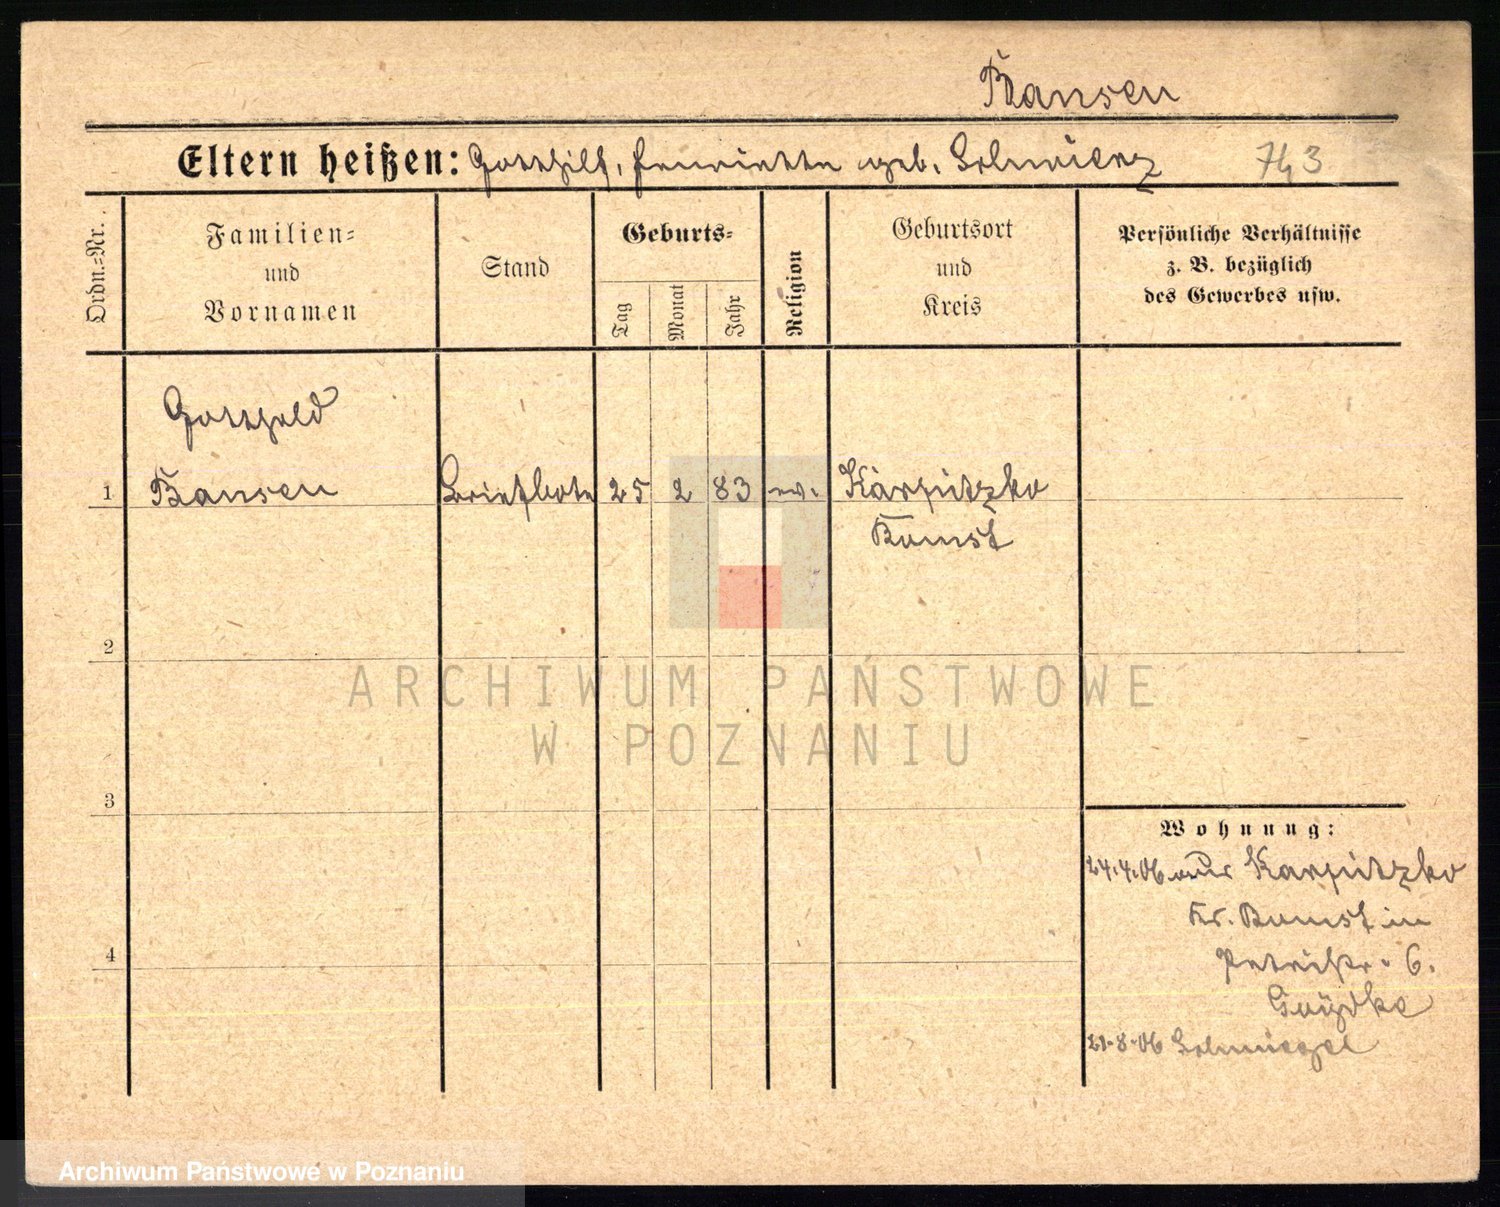 Bansen
Eltern heißen: Gotthilf, Henriette geb. Schmierz
743
Ordn.-Nr.
Familien-
und
Vornamen
Stand
Geburts-
Tag
Monat
Jahr
Religion
Geburtsort
und
Kreis
Persönliche Verhältnisse
z. B. bezüglich
des Gewerbes usw.
Gotthold
1 Bansen Briefbote 25 2 83 ev. Karpitzko
Bomst
2
ARCHIWUM PAŃSTWOWE
W POZNANIU
3
Wohnung:
24.4.06 aus Karpitzko
Kr. Bomst in
4
Petristr. 6.
21.8.06 Schmiegel
Archiwum Państwowe w Poznaniu